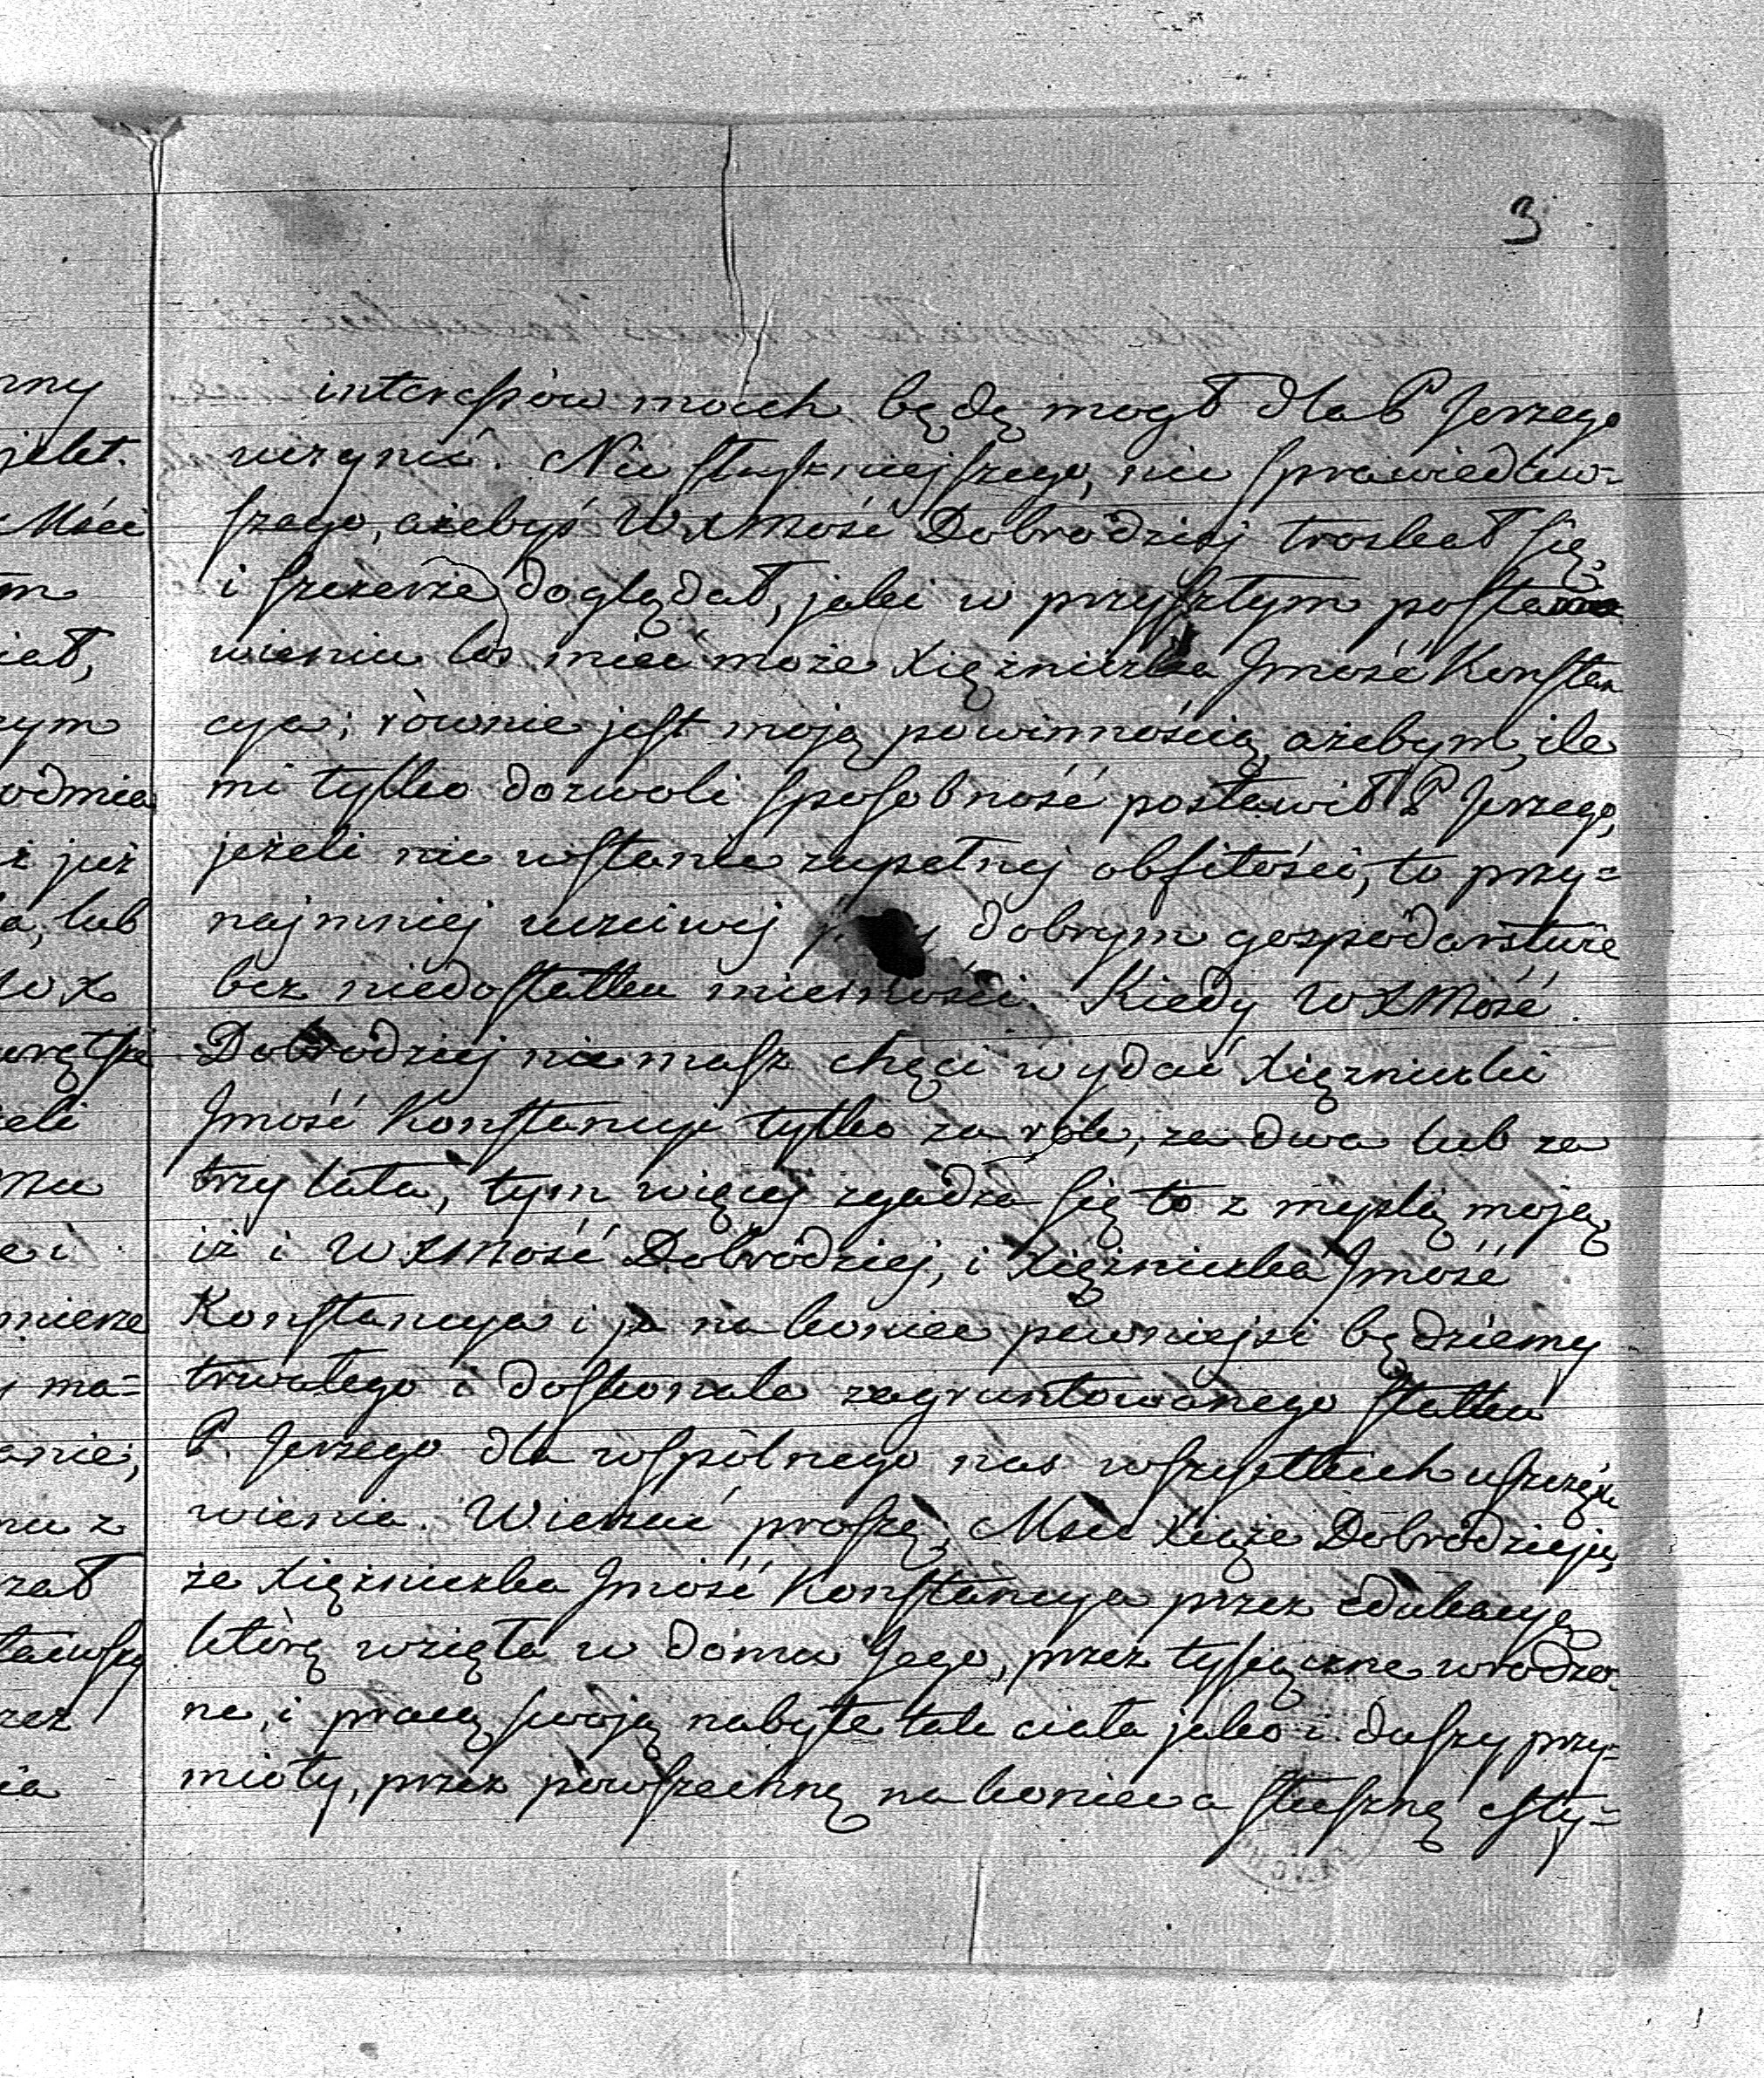 3
interessów moich będę mogł dla P Jerzego
uczynić. Nic słuszniejszego, nic sprawiedliw-
szego, ażebyś WXMość Dobrodziej troskał się
i szczerze doglądał, jaki w przyszłym posta
wieniu los mieć może Xiężniczka Jmość Konstan
cya; równie jest moją powinnością, ażebym, ile
mi tylko dozwoli sposobność postawił P Jerzego,
jeżeli nie w stanie zupełnej obfitości, to przy=
najmniej uczciwej dobrym gospodarstwie
bez niedostatku mierności. Kiedy WXMość
Dobrodziej nie masz chęci wydać Xiężniczki
Jmość Konstancyi tylko za rok, za dwa lub za
trzy lata, tym więcej zgadza się to z myslą moją
iż i WXMość Dobrodziej, i Xiężniczka Jmość
Konstancya i ja na koniec pewniejsi będziemy
trwałego i doskonale zagruntowanego statku
P Jerzego dla wspólnego nas wszystkich uszczęśli
wienia. Wierzać proszę, Mści Xiąże Dobrodzieju,
że Xiężniczka Jmość Konstancya przez edukacyą
którą wzięła w domu Jego, przez tysiączne wrodzo-
ne, i pracą swoją nabyte tak ciała jako i duszy przy=
mioty, przez powszechną na koniec a słuszną esty=
ny
jekt.
Mści
m
iał,
ym
odmia
ż już
a, lub
WX
eli
mu
e i
mierze
y ma=
anie;
nu z
zał
tawszy
zez
ia